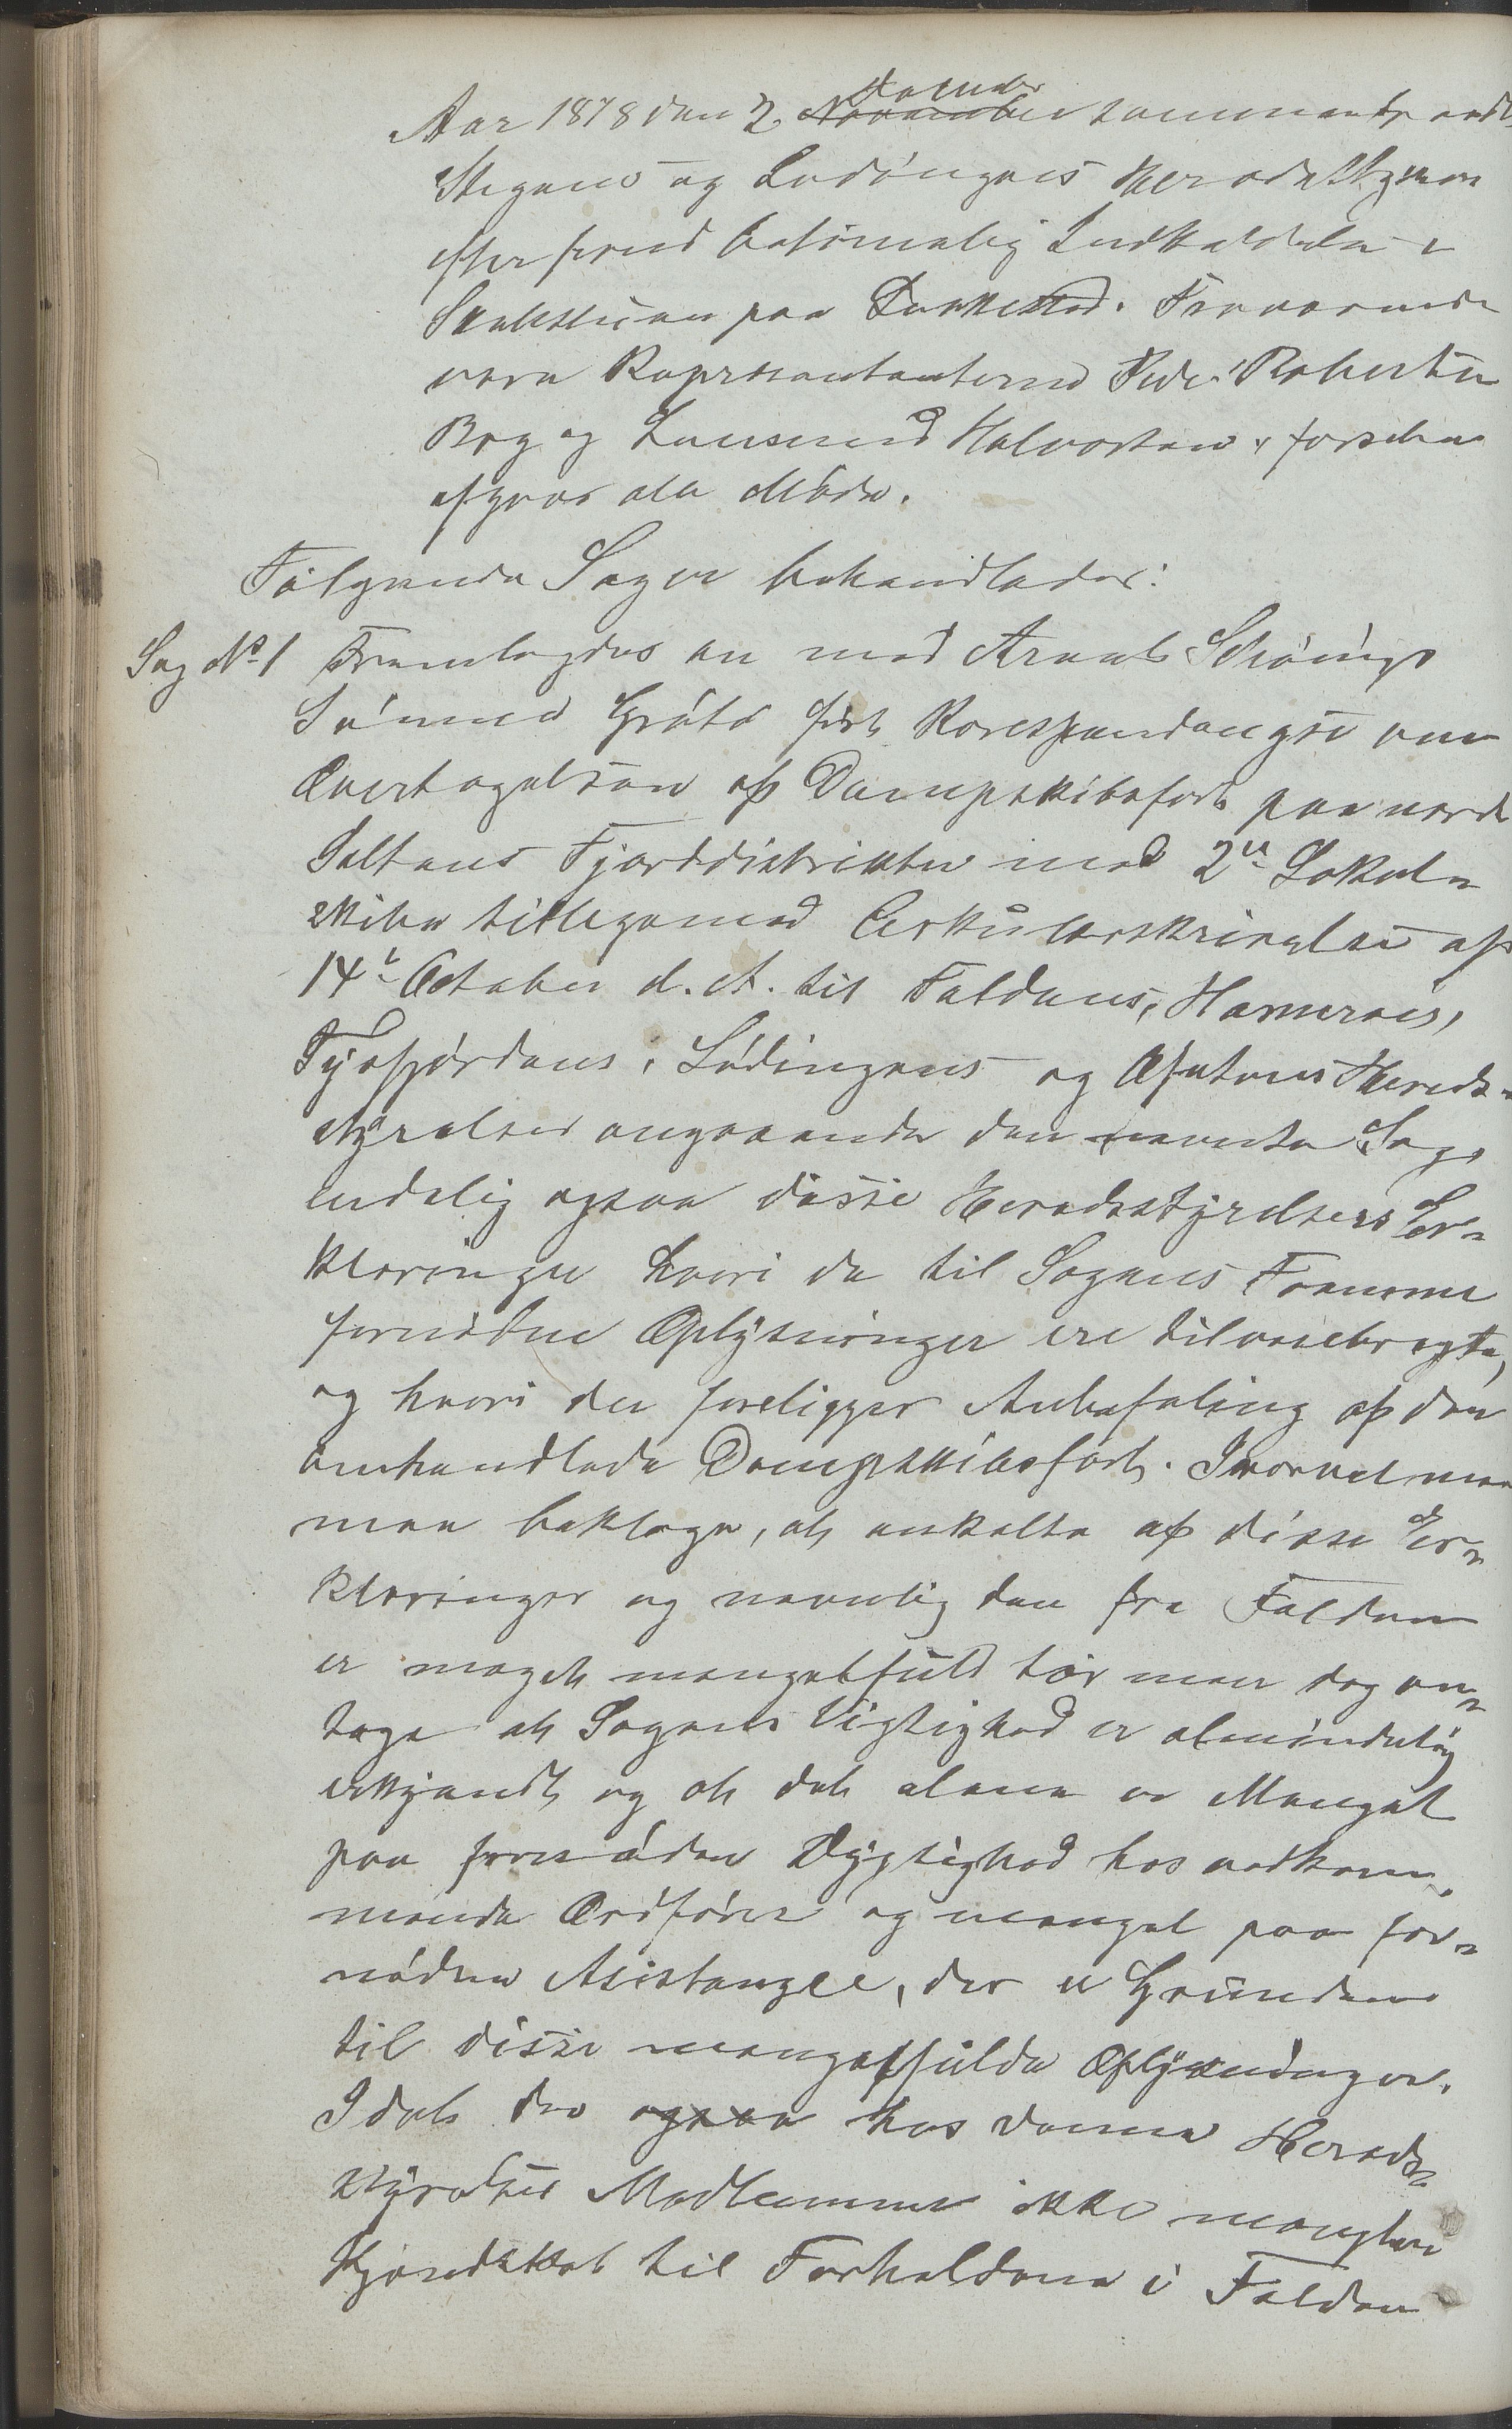 Aar 1878 den 2. ~~November~~ December sammentr
Stegens og Ledingens Heredsstyrer
efter forud betimelig Indkaldelse i
paa Fraværende
vare Repræsentanterne Peder Robertsen
Bog og Halvorsen, forøvrigt
afgaves alle Møde.
Følgende Sager behandledes:
Sag No 1 Fremlagdes en med Arent Schönings
Sönner Grötö fört Korespondangse om
Overtagelsen af Dampskibsfart paa nordre
Saltens Fjorddistrikter med 2de Lokal=
skibe tilligemed Cirkulærskrivelse af
14de October d. A. til Foldens, Hamerøes,
Tysfjordens, Lödingens og Ofotens Hereds=
styrelser angaaende den nævnte Sag,
endelig ogsaa disse Heredsstyrelsers Er=
klæringer hvori de til Sagens Fremme
fornødne Oplysninger ere tilveiebragte,
og hvori der foreligger Anbefaling af den
omhandlede Dampskibsfart. Ihvorvel man
maa beklage, at enkelte af disse Er=
klæringer og navnlig den fra Folden
er meget mangelfuld tör man dog an=
tage at Sagens Vigtighed er almindelig
erkjendt og at det alene er Mangel
paa fornöden Dygtighed hos vedkom=
mende Ordförer og mangel paa for=
nöden Asistangse, der er Grunden
til disse mangelfulde Oplysninger.
Idet der ogsaa hos denne Hereds=
styrelses Medlemmer ikke mangler
Kjendskab til Forholdene i Folden